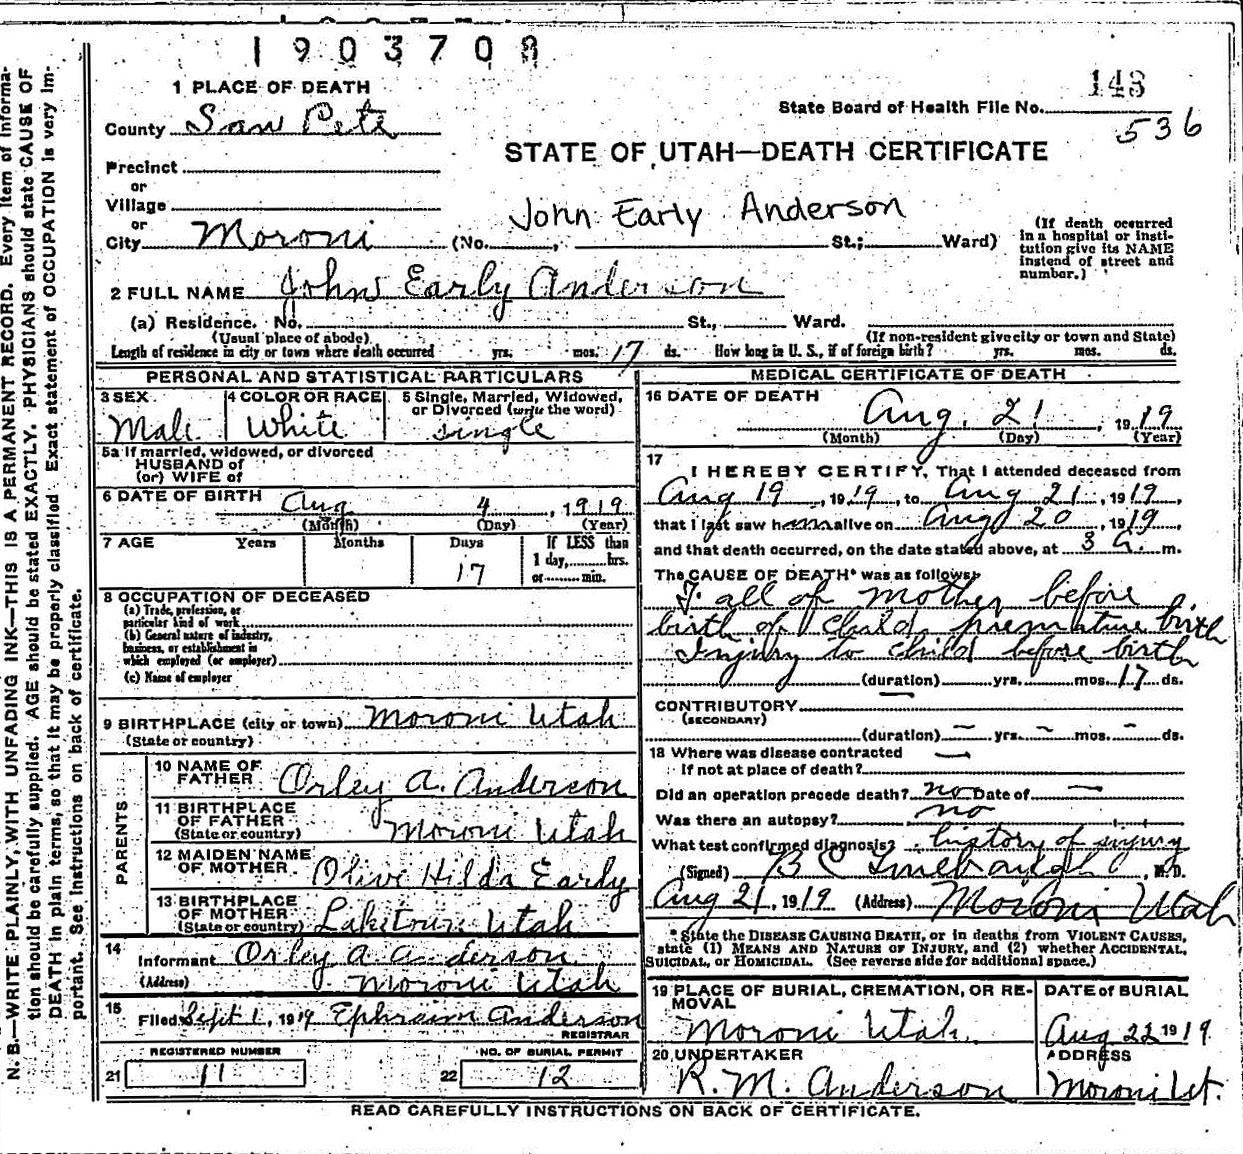 1903708
1 PLACE OF DEATH
143
State Board of Health File No.
536
County San Pete
STATE OF UTAH—DEATH CERTIFICATE
Precinct
or
Village
John Early Anderson
or
City Moroni (No. , St.; Ward)
(If death occurred in a hospital or insti-
tution give its NAME
instead of street and
number.)
2 FULL NAME John Early Anderson
(a) Residence. No. St., Ward.
(Usual place of abode) (If non-resident give city or town and State)
Length of residence in city or town where death occurred yrs. mos. 17 ds. How long in U. S., if of foreign birth? yrs. mos. ds.
PERSONAL AND STATISTICAL PARTICULARS
3 SEX
Male
4 COLOR OR RACE
White
5 Single, Married, Widowed,
or Divorced (write the word)
Single
5a If married, widowed, or divorced
HUSBAND of
(or) WIFE of
6 DATE OF BIRTH Aug 4, 1919
(Month) (Day) (Year)
7 AGE Years Months Days If LESS than
1 day, hrs.
17 or min.
8 OCCUPATION OF DECEASED
(a) Trade, profession, or
particular kind of work
(b) General nature of industry,
business, or establishment in
which employed (or employer)
(c) Name of employer
9 BIRTHPLACE (city or town) Moroni Utah
(State or country)
PARENTS
10 NAME OF
FATHER Orley A. Anderson
11 BIRTHPLACE
OF FATHER
(State or country) Moroni Utah
12 MAIDEN NAME
OF MOTHER Olive Hilda Early
13 BIRTHPLACE
OF MOTHER
(State or country) Laketown Utah
14
Informant Orley A Anderson
(Address) Moroni Utah
15
Filed Sept 1, 1919 Ephraim Anderson
REGISTRAR
REGISTERED NUMBER NO. OF BURIAL PERMIT
21 11 22 12
MEDICAL CERTIFICATE OF DEATH
16 DATE OF DEATH Aug. 21, 1919
(Month) (Day) (Year)
17
I HEREBY CERTIFY, That I attended deceased from
Aug 19, 1919, to Aug 21, 1919,
that I last saw him alive on Aug 20, 1919
and that death occurred, on the date stated above, at 3 A. m.
The CAUSE OF DEATH* was as follows:
Fall of mother before
birth of child premature birth
Injury to child before birth
(duration) yrs. mos. 17 ds.
CONTRIBUTORY
(SECONDARY)
(duration) — yrs. — mos. — ds.
18 Where was disease contracted —
If not at place of death?
Did an operation precede death? no Date of —
Was there an autopsy? no
What test confirmed diagnosis? history of injury
(Signed) B C , M.D.
Aug 21, 1919 (Address) Moroni Utah
* State the DISEASE CAUSING DEATH, or in deaths from VIOLENT CAUSES,
state (1) MEANS AND NATURE OF INJURY, and (2) whether ACCIDENTAL,
SUICIDAL, or HOMICIDAL. (See reverse side for additional space.)
19 PLACE OF BURIAL, CREMATION, OR RE-
MOVAL
Moroni Utah
DATE of BURIAL
Aug 22 1919
20 UNDERTAKER
R. M. Anderson
ADDRESS
Moroni Ut.
READ CAREFULLY INSTRUCTIONS ON BACK OF CERTIFICATE.
N. B.—WRITE PLAINLY, WITH UNFADING INK—THIS IS A PERMANENT RECORD. Every item of informa-
tion should be carefully supplied. AGE should be stated EXACTLY. PHYSICIANS should state CAUSE OF
DEATH in plain terms, so that it may be properly classified. Exact statement of OCCUPATION is very im-
portant. See instructions on back of certificate.